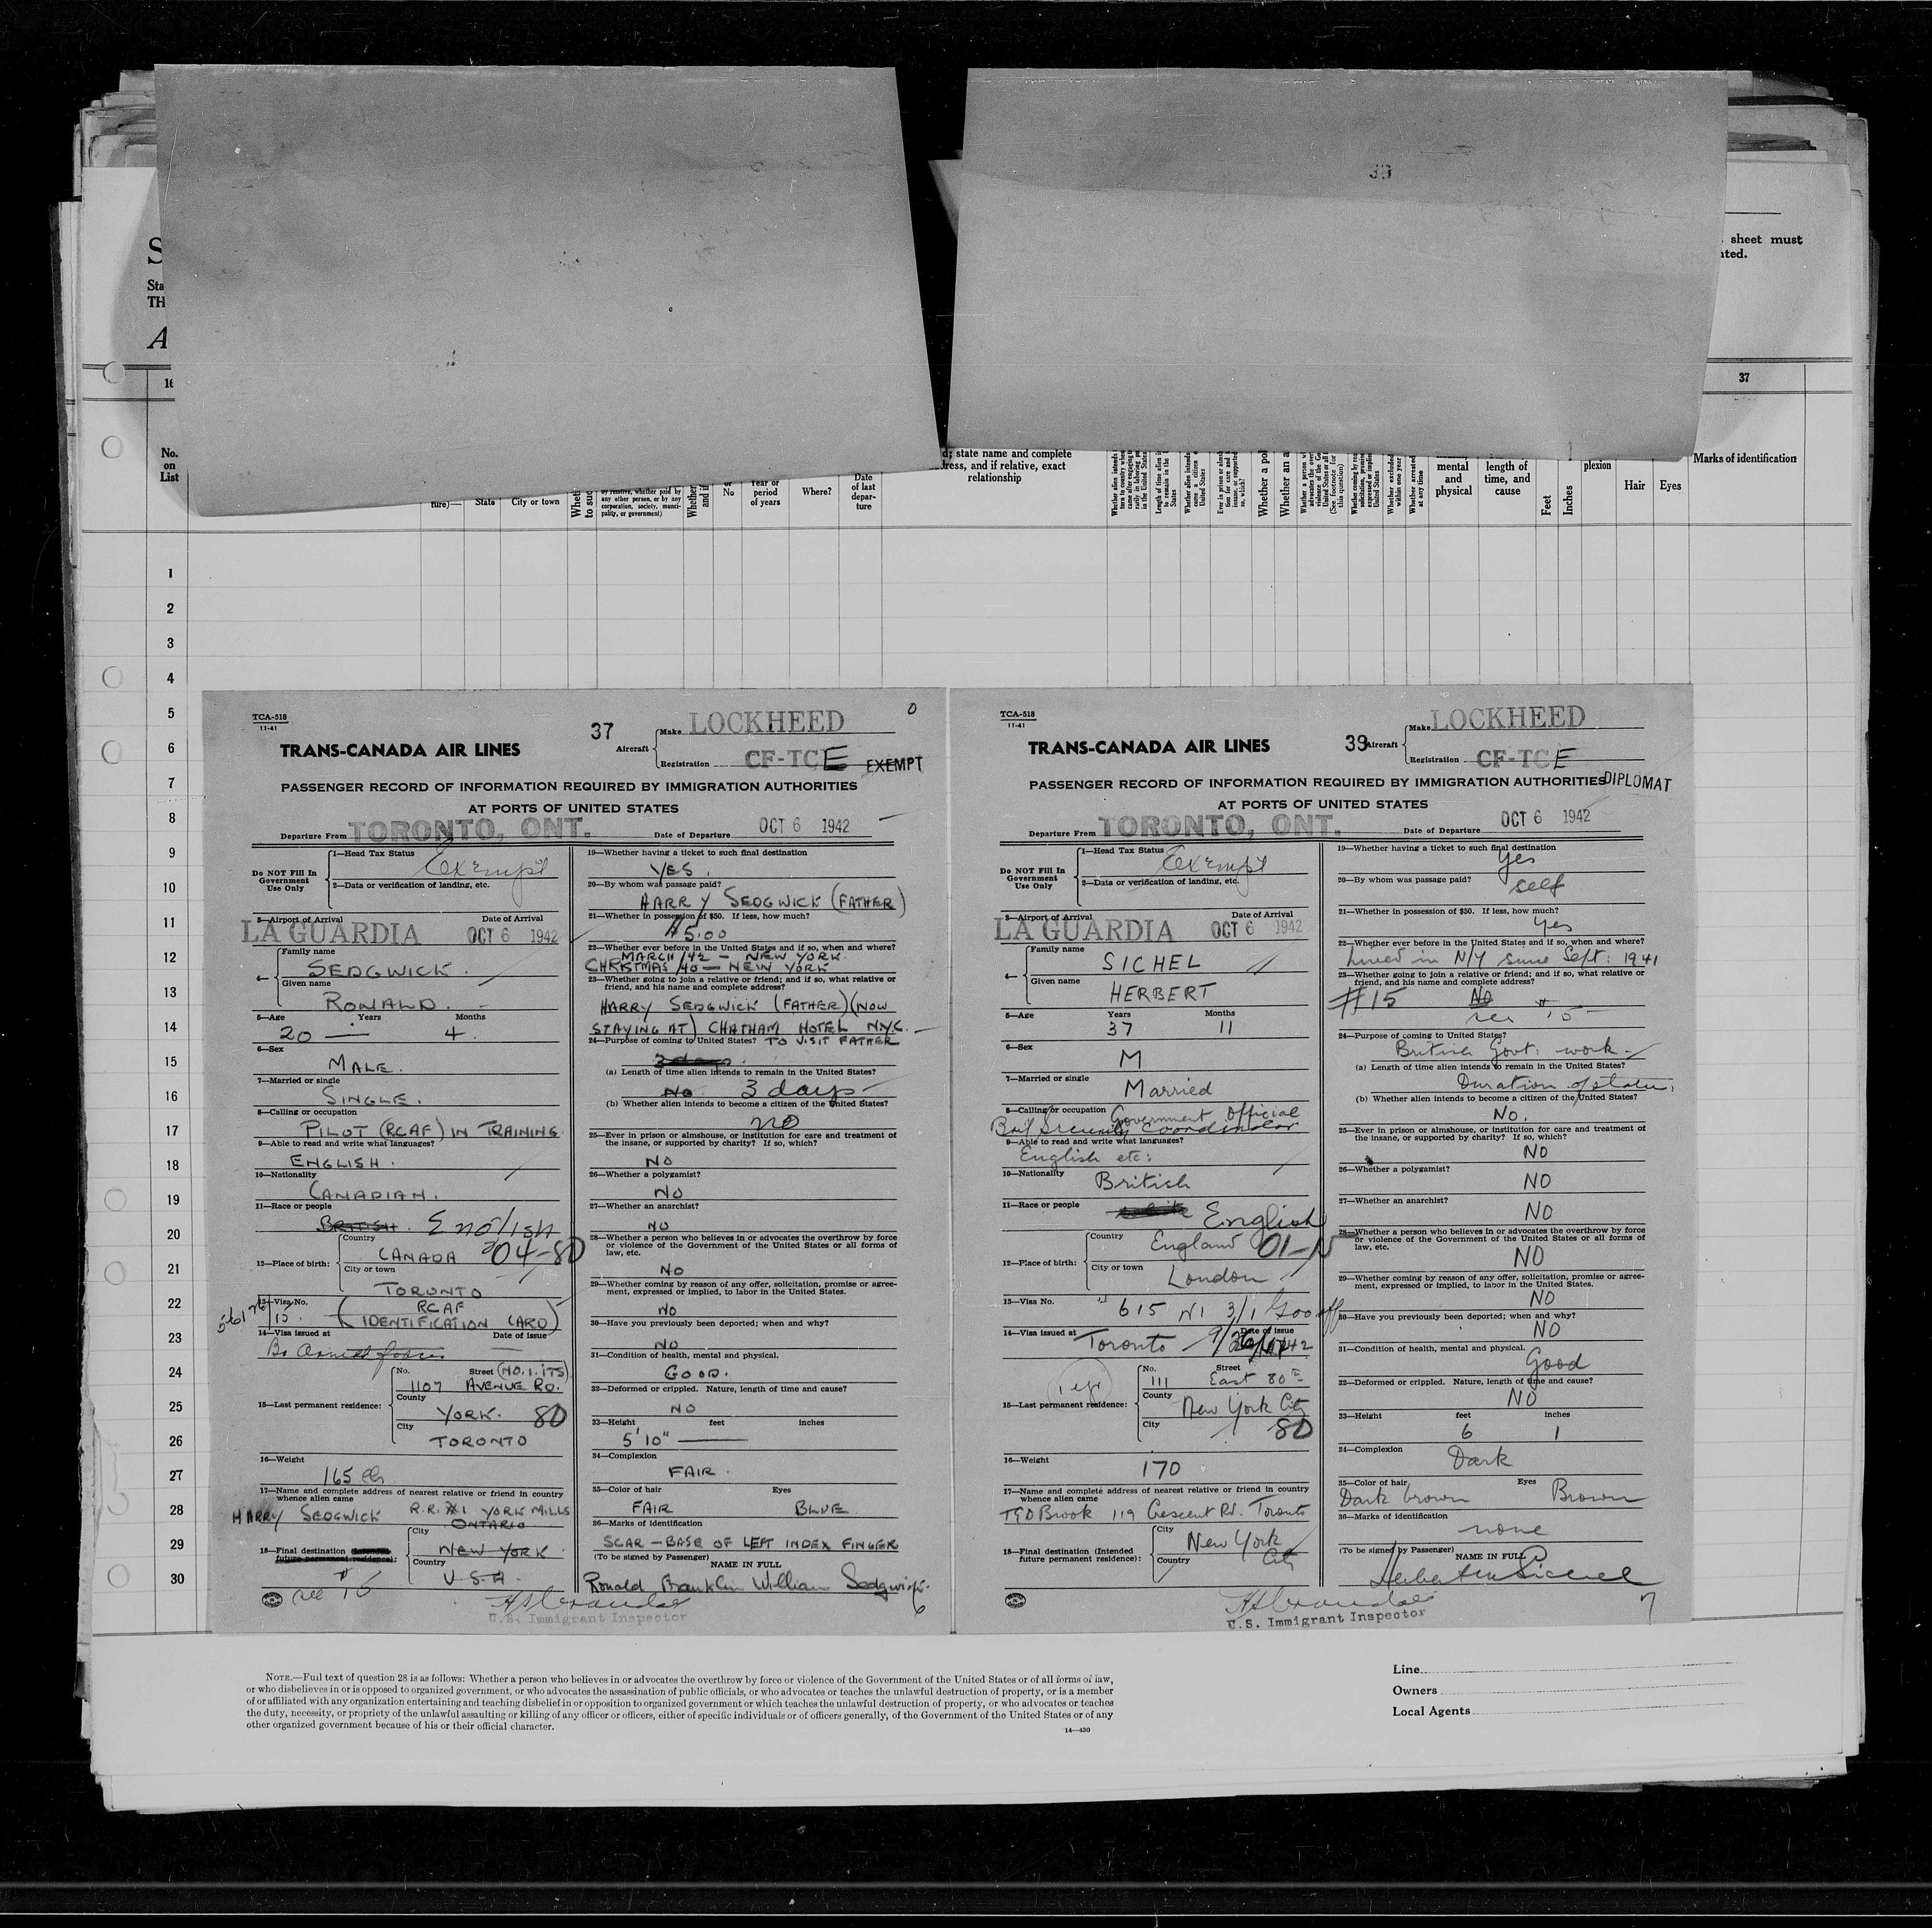 38
S
Sta
TH
A
sheet must
ated.
16
37
No.
on
List
ture)—
State
City or town
by relative, whether paid by
any other person, or by any
corporation, society, munici-
pality, or government)
No
Year or
period
of years
Where?
Date
of last
depar-
ture
d; state name and complete
ress, and if relative, exact
relationship
mental
and
physical
length of
time, and
cause
Feet
Inches
plexion
Hair
Eyes
Marks of identification
1
2
3
4
5
6
7
8
9
10
11
12
13
14
15
16
17
18
19
20
21
22
23
24
25
26
27
28
29
30
TCA-518
11-41
37
Aircraft
Make LOCKHEED
Registration CF-TCE
EXEMPT
TRANS-CANADA AIR LINES
PASSENGER RECORD OF INFORMATION REQUIRED BY IMMIGRATION AUTHORITIES
AT PORTS OF UNITED STATES
Departure From TORONTO, ONT.
Date of Departure OCT 6 1942
Do NOT Fill In
Government
Use Only
1—Head Tax Status Exempt
2—Data or verification of landing, etc.
3—Airport of Arrival Date of Arrival
LA GUARDIA OCT 6 1942
4—
Family name
SEDGWICK.
Given name
RONALD.
5—Age Years Months
20 — 4.
6—Sex
MALE.
7—Married or single
SINGLE.
8—Calling or occupation
PILOT (RCAF) IN TRAINING
9—Able to read and write what languages?
ENGLISH.
10—Nationality
CANADIAN.
11—Race or people
BRITISH. English
12—Place of birth:
Country
CANADA 204-80
City or town
TORONTO
13—Visa No.
15. (RCAF
IDENTIFICATION CARD)
14—Visa issued at Date of issue
15—Last permanent residence:
No. Street (NO. 1. ITS)
1107 AVENUE RD.
County
YORK. 80
City
TORONTO
16—Weight
165 lbs
17—Name and complete address of nearest relative or friend in country
whence alien came
HARRY SEDGWICK R.R. #1 YORK MILLS
ONTARIO
18—Final destination (Intended
future permanent residence):
City
NEW YORK.
Country
U.S.A.
see #15
19—Whether having a ticket to such final destination
YES.
20—By whom was passage paid?
HARRY SEDGWICK (FATHER)
21—Whether in possession of $50. If less, how much?
$5.00
22—Whether ever before in the United States and if so, when and where?
MARCH /42 — NEW YORK.
CHRISTMAS /40 — NEW YORK
23—Whether going to join a relative or friend; and if so, what relative or
friend, and his name and complete address?
HARRY SEDGWICK (FATHER) (NOW
STAYING AT) CHATHAM HOTEL N.Y.C.
24—Purpose of coming to United States? TO VISIT FATHER
3 days.
(a) Length of time alien intends to remain in the United States?
No. 3 days
(b) Whether alien intends to become a citizen of the United States?
no
25—Ever in prison or almshouse, or institution for care and treatment of
the insane, or supported by charity? If so, which?
NO
26—Whether a polygamist?
NO
27—Whether an anarchist?
NO
28—Whether a person who believes in or advocates the overthrow by force
or violence of the Government of the United States or all forms of
law, etc.
NO
29—Whether coming by reason of any offer, solicitation, promise or agree-
ment, expressed or implied, to labor in the United States.
NO
30—Have you previously been deported; when and why?
NO
31—Condition of health, mental and physical.
GOOD.
32—Deformed or crippled. Nature, length of time and cause?
NO
33—Height feet inches
5'10"
34—Complexion
FAIR.
35—Color of hair Eyes
FAIR BLUE.
36—Marks of identification
SCAR — BASE OF LEFT INDEX FINGER
(To be signed by Passenger)
NAME IN FULL
Ronald Franklin William Sedgwick.
6
U.S. Immigrant Inspector
TCA-518
11-41
39
Aircraft
Make LOCKHEED
Registration CF-TCE
DIPLOMAT
TRANS-CANADA AIR LINES
PASSENGER RECORD OF INFORMATION REQUIRED BY IMMIGRATION AUTHORITIES
AT PORTS OF UNITED STATES
Departure From TORONTO, ONT.
Date of Departure OCT 6 1942
Do NOT Fill In
Government
Use Only
1—Head Tax Status Exempt
2—Data or verification of landing, etc.
3—Airport of Arrival Date of Arrival
LA GUARDIA OCT 6 1942
4—
Family name
SICHEL
Given name
HERBERT
5—Age Years Months
37 11
6—Sex
M
7—Married or single
Married
8—Calling or occupation Government Official
Brit Security Coordinator
9—Able to read and write what languages?
English etc:
10—Nationality
British
11—Race or people
English
12—Place of birth:
Country
England 01-15
City or town
London
13—Visa No.
615 N1 3/1 Gov off
14—Visa issued at Date of issue
Toronto
1 yr
15—Last permanent residence:
No. Street
111 East 80th
County
New York City
City
80
16—Weight
170
17—Name and complete address of nearest relative or friend in country
whence alien came
TGD Brook 119 Crescent Rd. Toronto
18—Final destination (Intended
future permanent residence):
City
New York
City
Country
19—Whether having a ticket to such final destination
Yes
20—By whom was passage paid?
self
21—Whether in possession of $50. If less, how much?
Yes
22—Whether ever before in the United States and if so, when and where?
Lived in N/Y since Sept: 1941
23—Whether going to join a relative or friend; and if so, what relative or
friend, and his name and complete address?
#15 No
see #15
24—Purpose of coming to United States?
British Govt: work.
(a) Length of time alien intends to remain in the United States?
Duration of status,
(b) Whether alien intends to become a citizen of the United States?
No.
25—Ever in prison or almshouse, or institution for care and treatment of
the insane, or supported by charity? If so, which?
NO
26—Whether a polygamist?
NO
27—Whether an anarchist?
NO
28—Whether a person who believes in or advocates the overthrow by force
or violence of the Government of the United States or all forms of
law, etc.
NO
29—Whether coming by reason of any offer, solicitation, promise or agree-
ment, expressed or implied, to labor in the United States.
NO
30—Have you previously been deported; when and why?
NO
31—Condition of health, mental and physical.
Good
32—Deformed or crippled. Nature, length of time and cause?
NO
33—Height feet inches
6 1
34—Complexion
Dark
35—Color of hair Eyes
Dark brown Brown
36—Marks of identification
none
(To be signed by Passenger)
NAME IN FULL
U.S. Immigrant Inspector
7
NOTE.—Full text of question 28 is as follows: Whether a person who believes in or advocates the overthrow by force or violence of the Government of the United States or of all forms of law,
or who disbelieves in or is opposed to organized government, or who advocates the assassination of public officials, or who advocates or teaches the unlawful destruction of property, or is a member
of or affiliated with any organization entertaining and teaching disbelief in or opposition to organized government or which teaches the unlawful destruction of property, or who advocates or teaches
the duty, necessity, or propriety of the unlawful assaulting or killing of any officer or officers, either of specific individuals or of officers generally, of the Government of the United States or of any
other organized government because of his or their official character.
14—430
Line
Owners
Local Agents